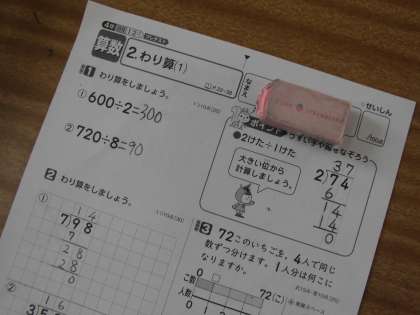 算数
2.わり算(1)
1 わり算をしましょう。
① 600÷2=300
② 720÷8=90
2 わり算をしましょう。
①
14
7)98
7
28
28
0
②
16
なまえ
せいしん
/100点
ポイント
うすい字や線をなぞろう
●2けた÷1けた
大きい位から
計算しましょう。
37
2)74
6
14
14
0
3 72このいちごを、4人で同じ
数ずつ分けます。1人分は何こに
なりますか。
0
こ数
人数
0 1
72(こ)